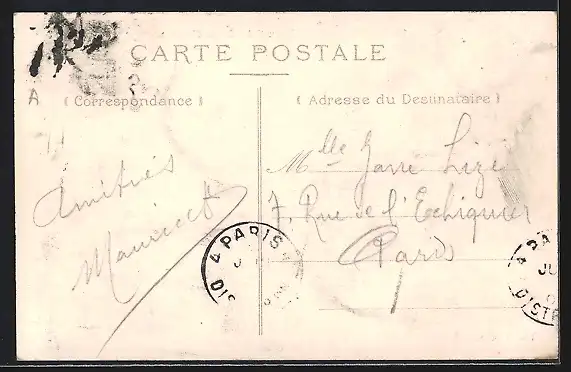 CARTE POSTALE
A
( Correspondance )
( Adresse du Destinataire )
Amitiés
Mlle Lizé
7, Rue de l'Echiquier
Paris
4 PARIS
DIS
4 PA
JU
DISTR